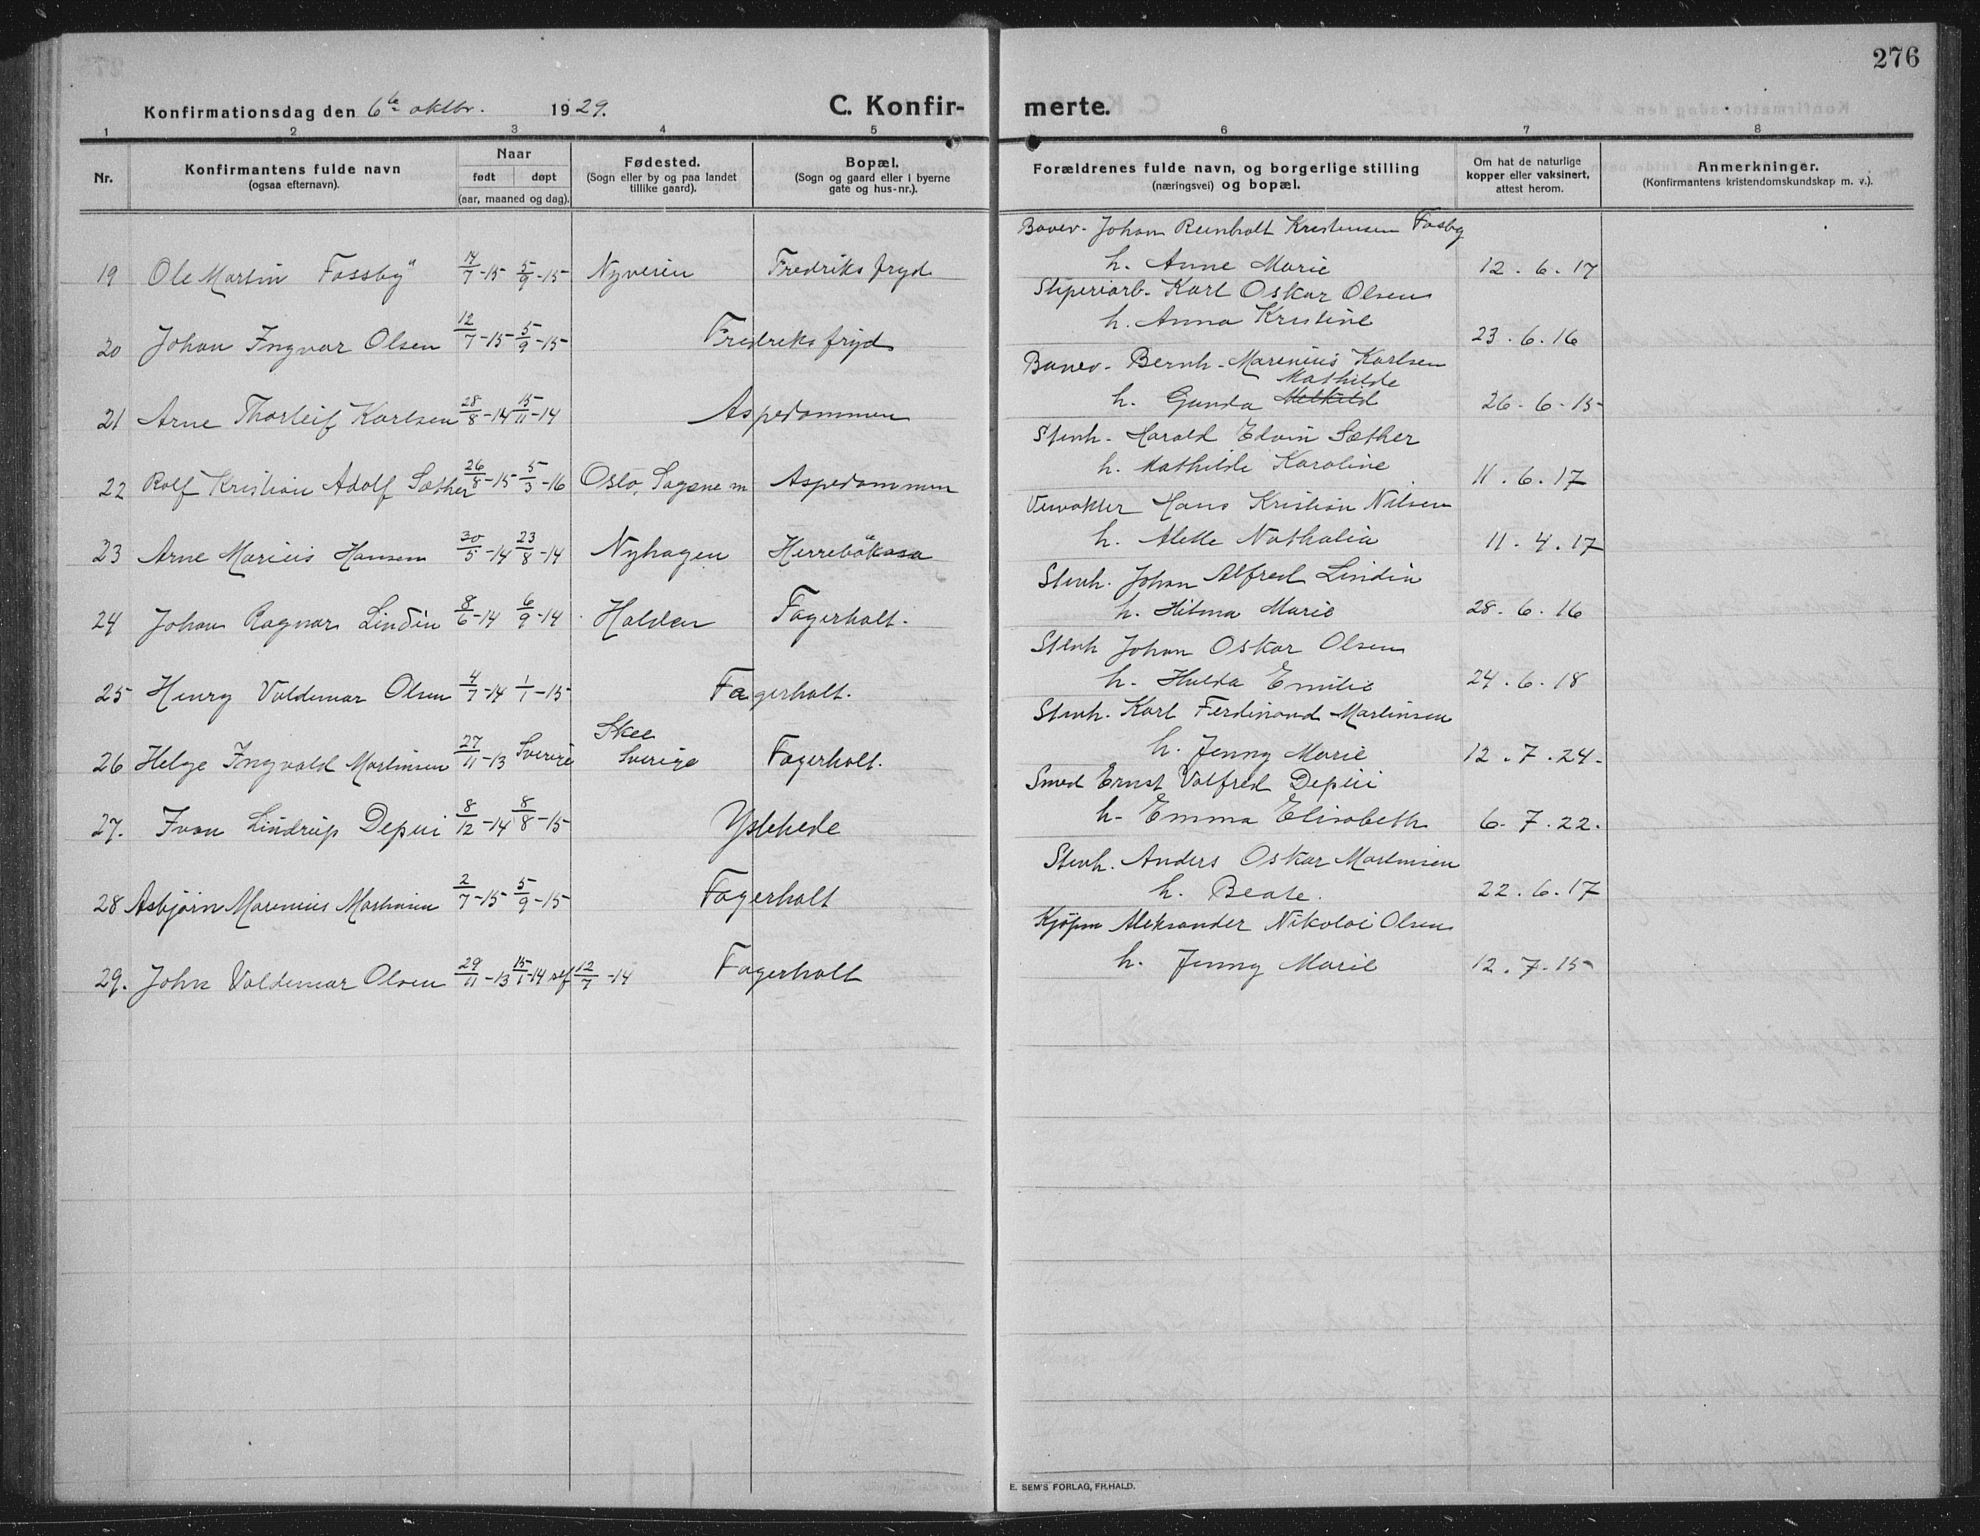 276
Konfirmationsdag den 6te oktbr. 1929. C. Konfirmerte.
1 2 3 4 5 6 7 8
Nr.
Konfirmantens fulde navn
(ogsaa efternavn).
Naar
født døpt
(aar, maaned og dag).
Fødested.
(Sogn eller by og paa landet
tillike gaard).
Bopæl.
(Sogn og gaard eller i byerne
gate og hus-nr.).
Forældrenes fulde navn, og borgerlige stilling
(næringsvei) og bopæl.
Om hat de naturlige
kopper eller vaksinert,
attest herom.
Anmerkninger.
(Konfirmantens kristendomskundskap m. v.).
Banev. Johan Reinholt Kristensen Fosby
19 Ole Martin Fossby 17/7-15 5/9-15 Nyveien Fredriksfryd h. Anne Marie 12.6.17
Sliperiarb. Karl Oskar Olsen
20 Johan Ingvar Olsen 12/7-15 5/9-15 Fredriksfryd h. Anna Kristine 23.6.16
Banev. Bernh. Marenius Karlsen
Mathilde
21 Arne Thorleif Karlsen 28/8-14 15/11-14 Aspedammen h. Gunda 26-6-15
Stenh. Harald Edvin Sæther
22 Rolf Kristian Adolf Sæther 26/8-15 5/3-16 Oslo, Sagene m Aspedammen h. Mathilde Karoline 11.6.17
Veivokter Hans Kristian Nilsen
23 Arne Marius Hansen 30/5-14 23/8-14 Nyhagen Herrebøkasa h. Alette Nathalia 11.4.17
Stenh. Johan Alfred Lindin
24 Johan Ragnar Lindin 8/6-14 6/9-14 Halden Fagerholt. h. Hilma Marie 28.6.16
Stenh Johan Oskar Olsen
25 Henry Valdemar Olsen 4/7-14 1/1-15 Fagerholt. h. Hulda Emilie 24.6.18
Stenh. Karl Ferdinand Martinsen
Skee
26 Helge Ingvald Martinsen 27/11-13 Sverige Sverige Fagerholt. h. Jenny Marie 12.7.24.
Smed Ernst Valfred Depui
27. Ivan Lindrup Depui 8/12-14 8/8-15 Ystehede h. Emma Elisabeth 6.7.22.
Stenh. Anders Oskar Martinsen
28 Asbjørn Marenius Martinsen 2/7-15 5/9-15 Fagerholt h. Beate. 22.6.17
Kjøpm Aleksander Nikolai Olsen
29. John Valdemar Olsen 29/11-13 15/1-14 12/7-14 Fagerholt h. Jenny Marie 12.7.15
E. SEM'S FORLAG, FR.HALD.